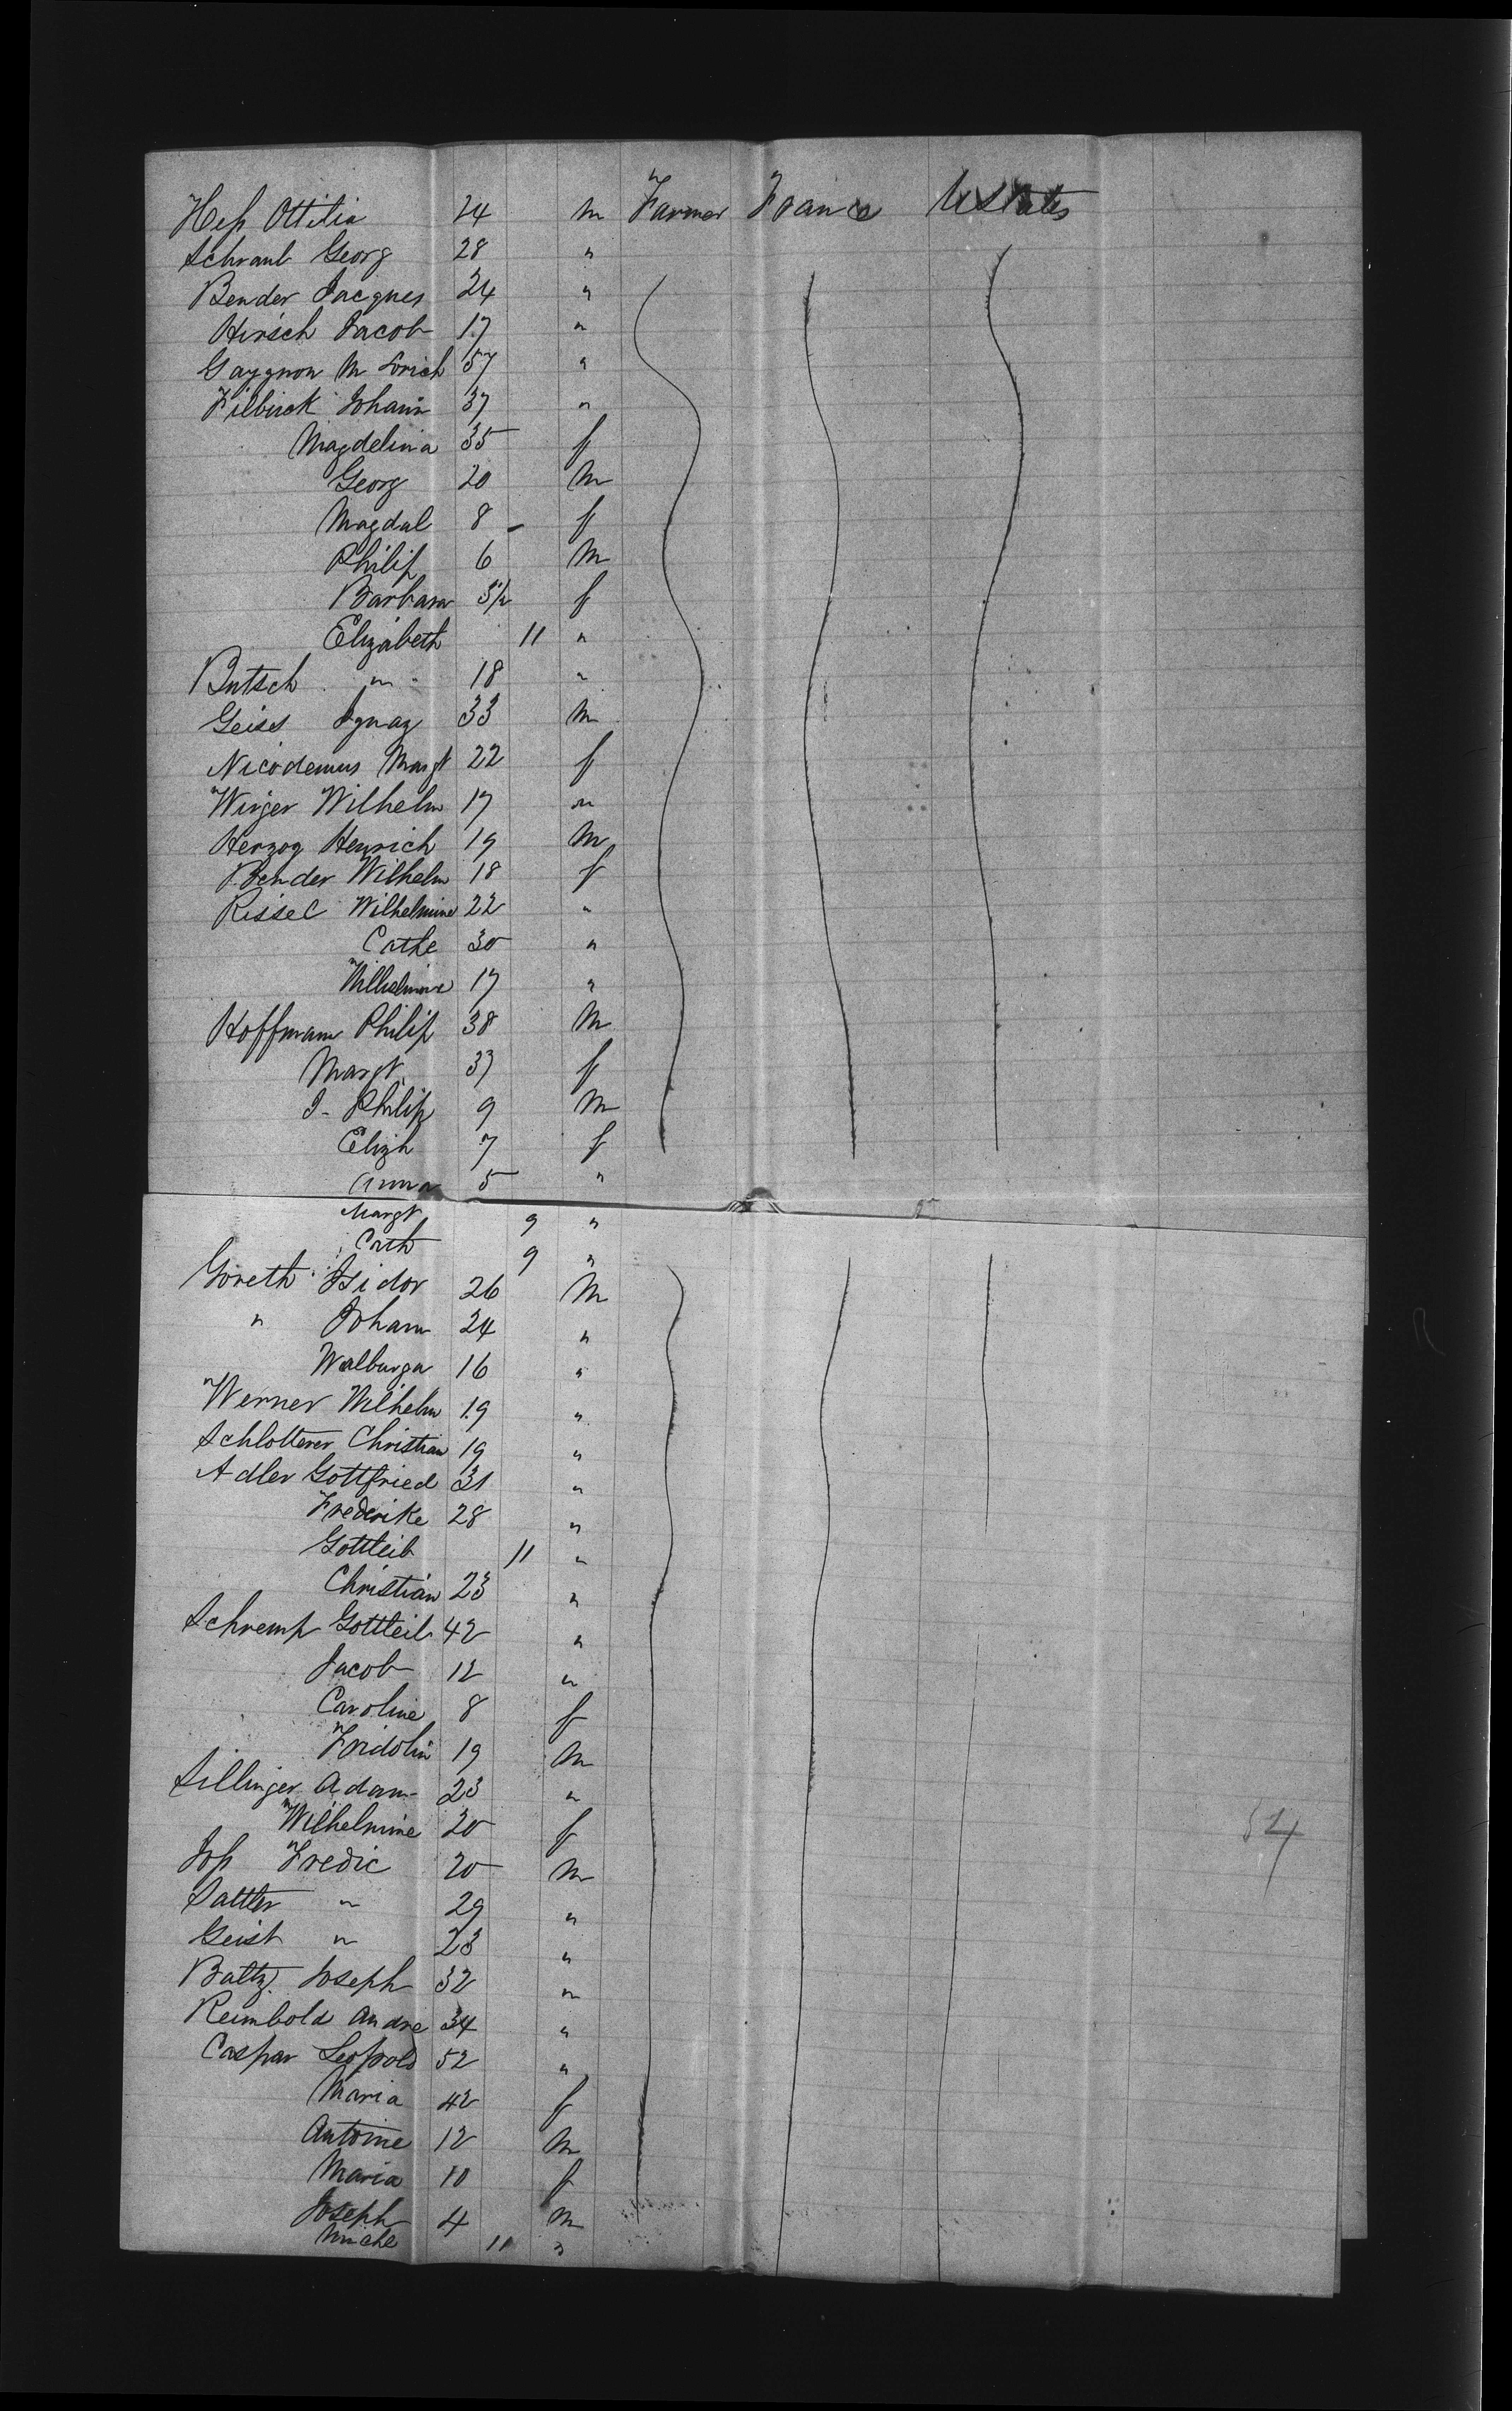 Hep Ottilia 24 m Farmer France UStates
Schraub Georg 28 "
Bender Jacques 24 "
Hirsch Jacob 17 "
Gaygnon M 57 "
Filbirck Johann 37 "
Magdelina 35 f
Georg 20 m
Magdal 8 - f
Philip 6 m
Barbara 3 1/2 f
Elizabeth 11 "
Butsch " 18 "
Geiss Ignaz 33 m
Nicodemus Margt 22 f
Winger Wilhelm 17 m
Herzog Henrich 19 m
Bender Wilhelm 18 f
Rissel Wilhelmine 22 "
Cathe 30 "
Wilhelmine 17 "
Hoffmann Philip 38 m
Margt 37 f
J- Philip 9 m
Elizh 7 f
Anna 5 "
Margt 9 "
Cath 9 "
Goreth Isidor 26 m
" Johann 24 "
Walburga 16 "
Werner Wilhelm 19 "
Schlotterer Christian 19 "
Adler Gottfried 31 "
Frederike 28 "
Gottleib 11 "
Christian 23 "
Schremp Gottleib 42 "
Jacob 12 "
Caroline 8 f
Fridolin 19 m
Sillinger Adam 23 "
Wilhelmine 20 f
54
Jop Fredic 20 m
Sattler " 29 "
Geist " 23 "
Baltz Joseph 32 "
Reimbold Andre 34 "
Caspar Leopold 52 "
Maria 42 f
Antoine 12 m
Maria 10 f
Joseph 4 m
Miche 11 "